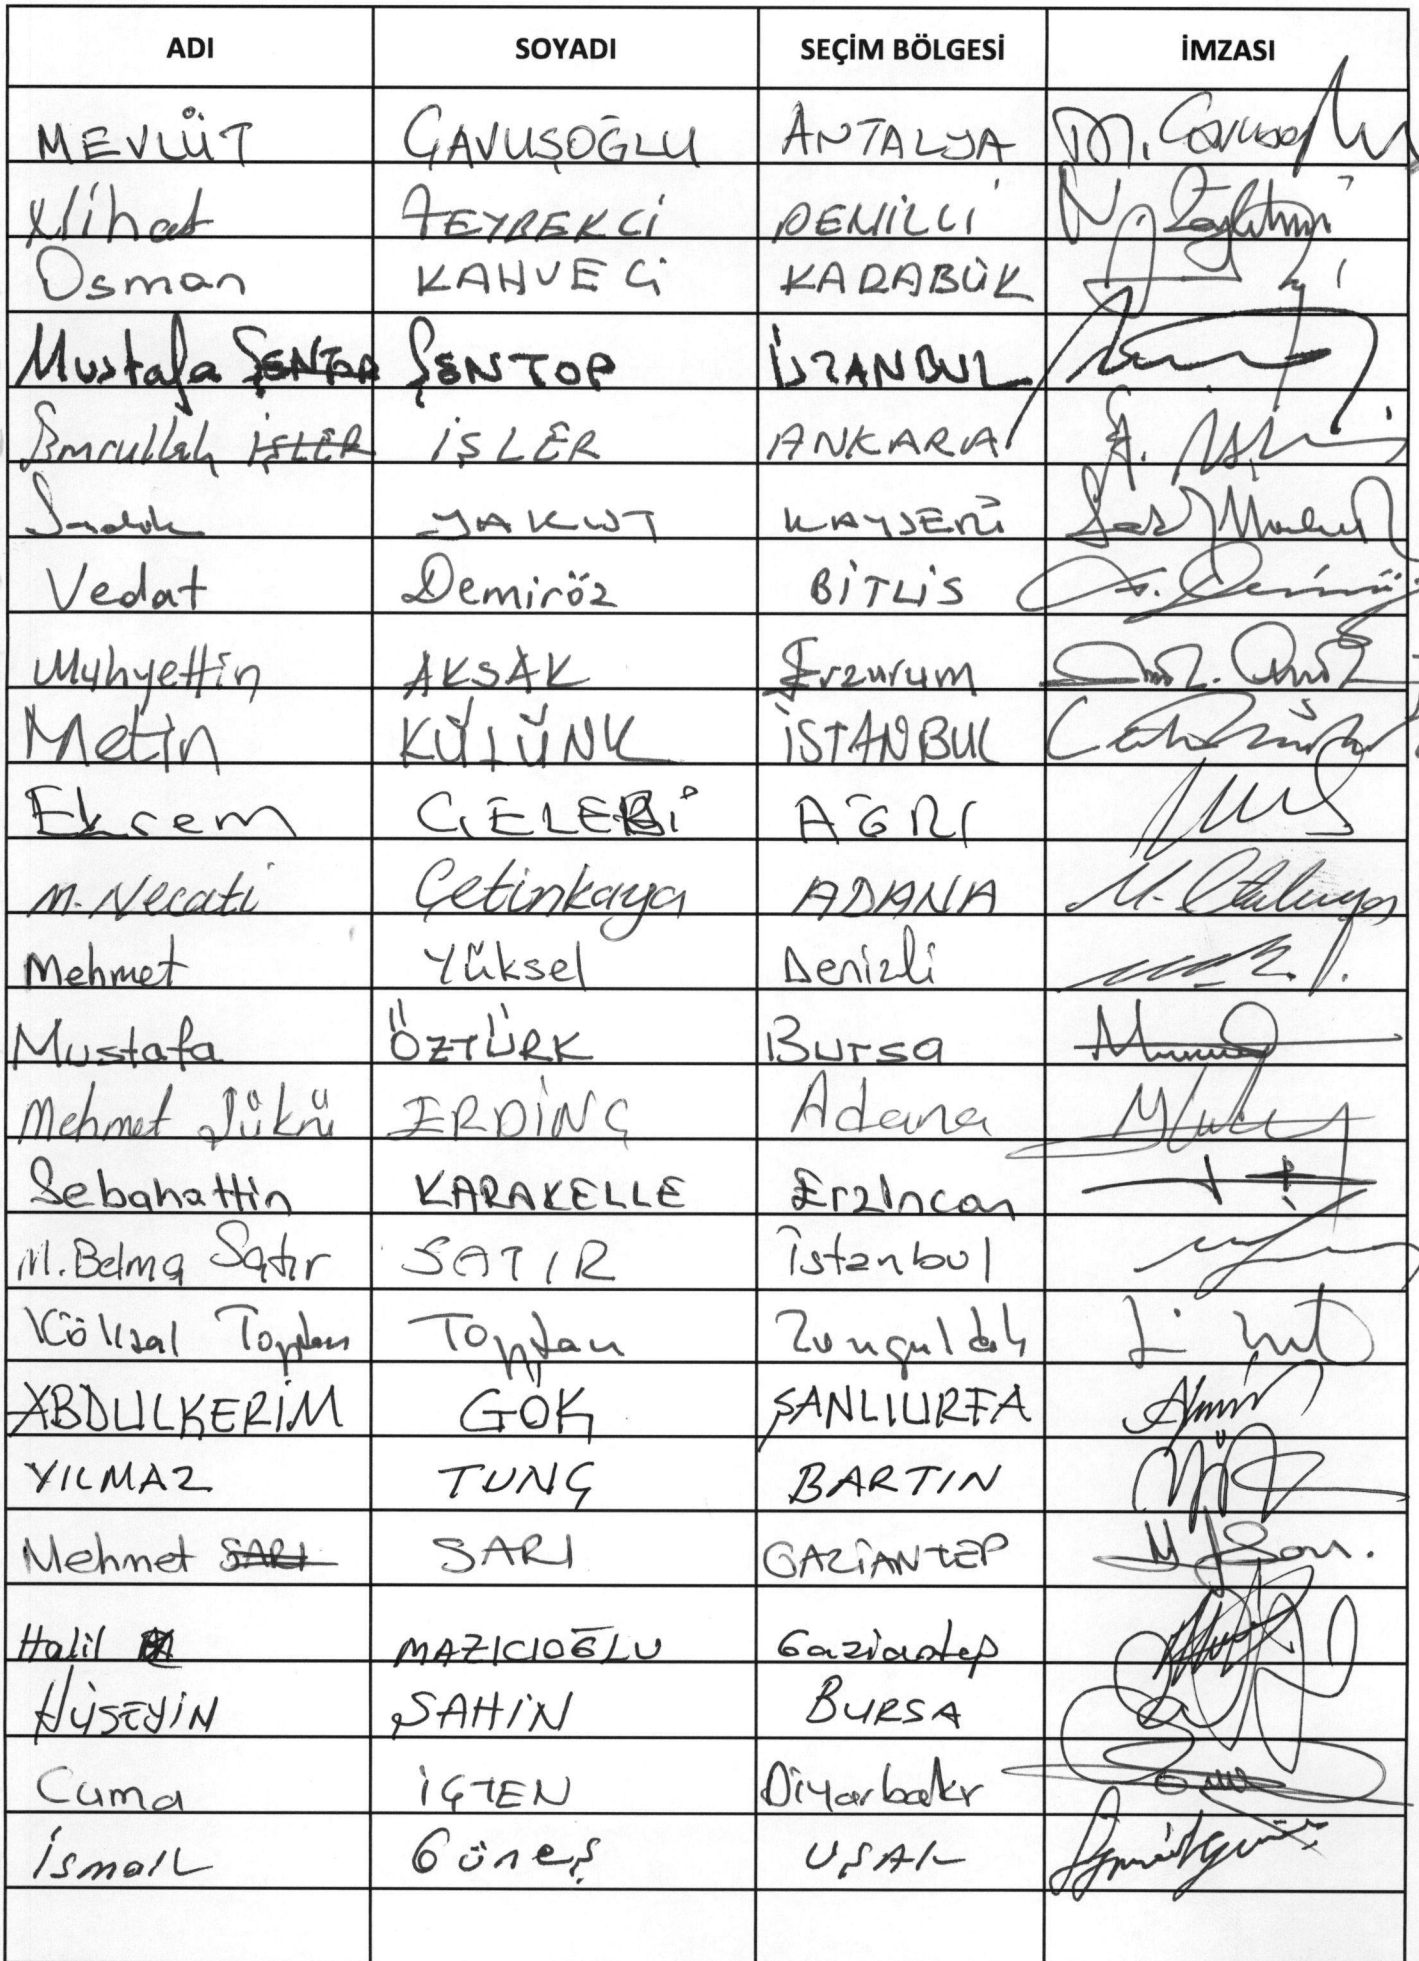 ADI SOYADI SEÇİM BÖLGESİ İMZASI
MEVLÜT ÇAVUŞOĞLU ANTALYA M. Çavuşoğlu
Nihat ZEYBEKCİ DENİZLİ N. Zeybekci
Osman KAHVECİ KARABÜK
Mustafa ŞENTOP ŞENTOP İSTANBUL
Emrullah İŞLER İŞLER ANKARA
Sadık YAKUT KAYSERİ
Vedat Demiröz BİTLİS
Muhyettin AKSAK Erzurum
Metin KÜLÜNK İSTANBUL
Ekrem ÇELEBİ AĞRI
M. Necati Çetinkaya ADANA M. Çetinkaya
Mehmet Yüksel Denizli
Mustafa ÖZTÜRK Bursa
Mehmet Şükrü ERDİNÇ Adana
Sebahattin KARAKELLE Erzincan
M. Belma Satır SATIR İstanbul
Köksal Toptan Toptan Zonguldak
ABDULKERİM GÖK ŞANLIURFA
YILMAZ TUNÇ BARTIN
Mehmet SARI SARI GAZİANTEP
Halil MAZICIOĞLU Gaziantep
HÜSEYİN ŞAHİN BURSA
Cuma İÇTEN Diyarbakır
İsmail Güneş UŞAK